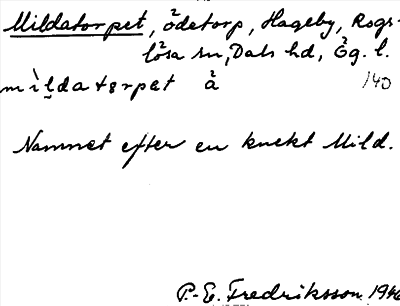 Mildatorpet, ödetorp, Hageby, Rogs-
lösa sn, Dals hd, Ög. l.
mìldatərpət å 140
Namnet efter en knekt Mild.
P.-E. Fredriksson 1946